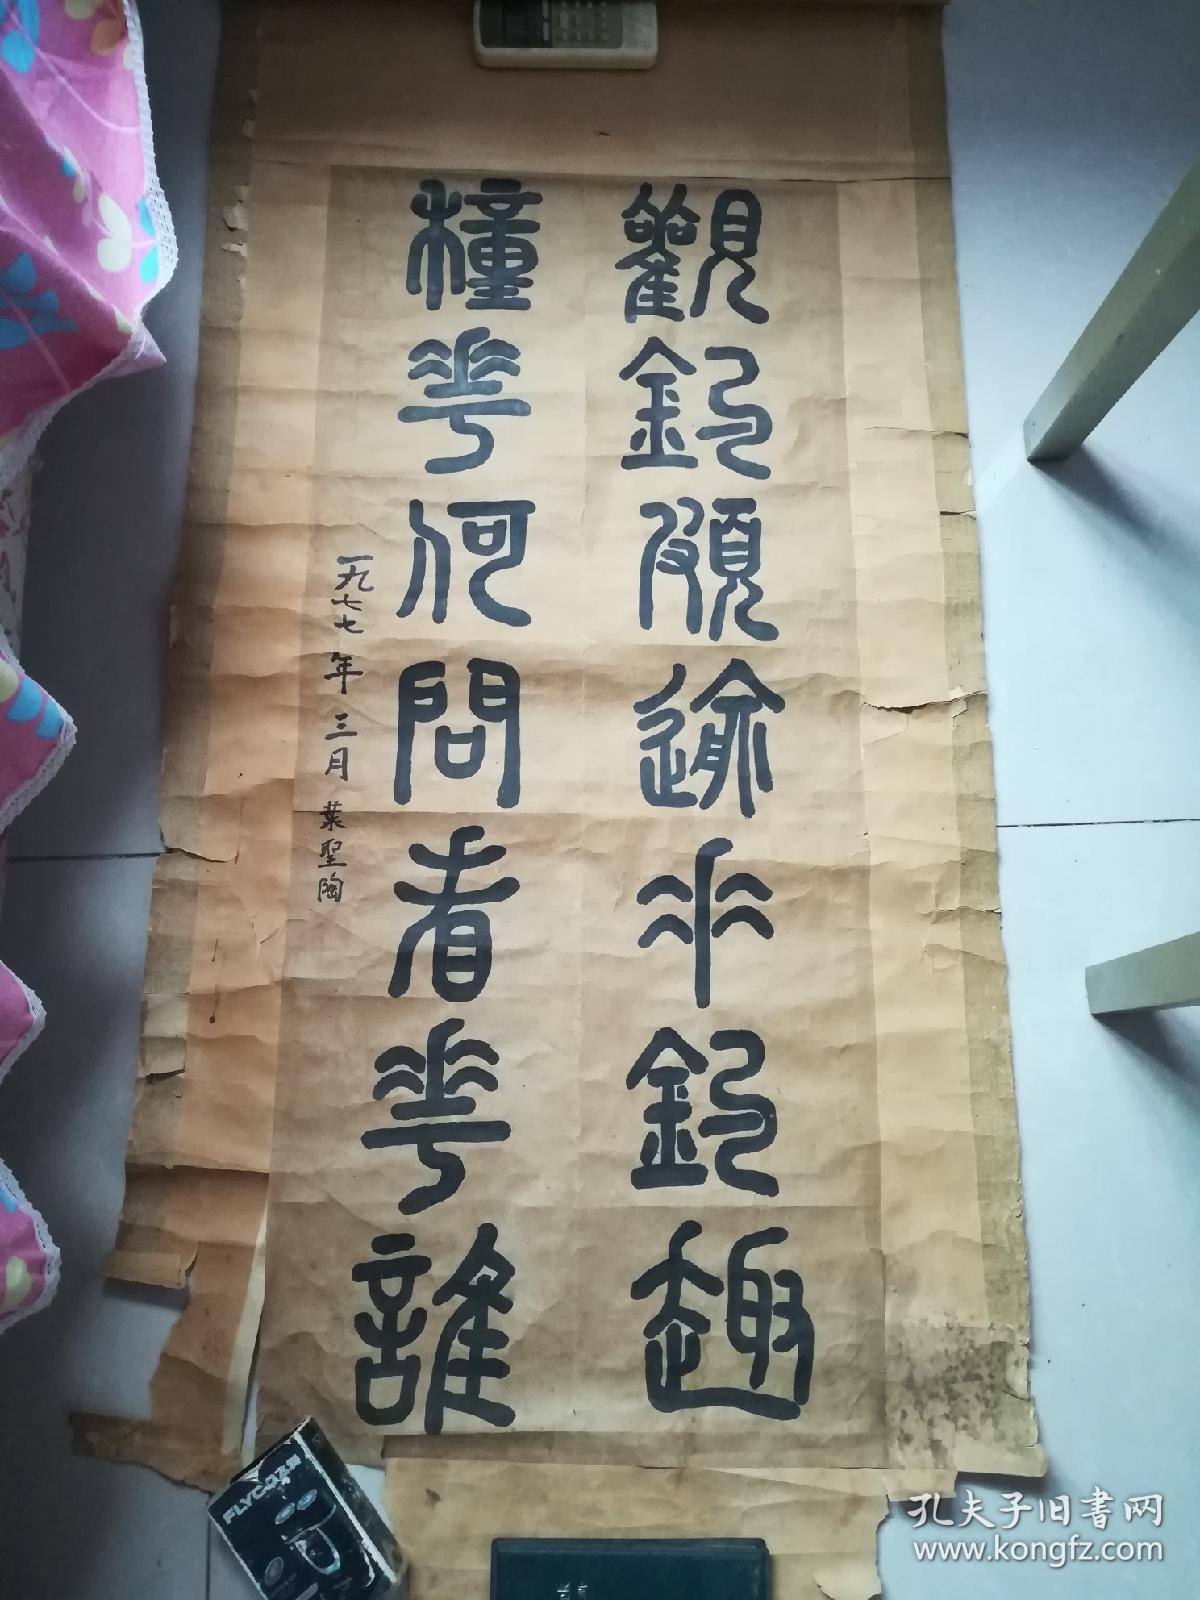 觀釣頗逾垂釣趣
種花何問看花誰
一九七七年三月 葉聖陶
FLYCO
孔夫子旧书网
www.kongfz.com